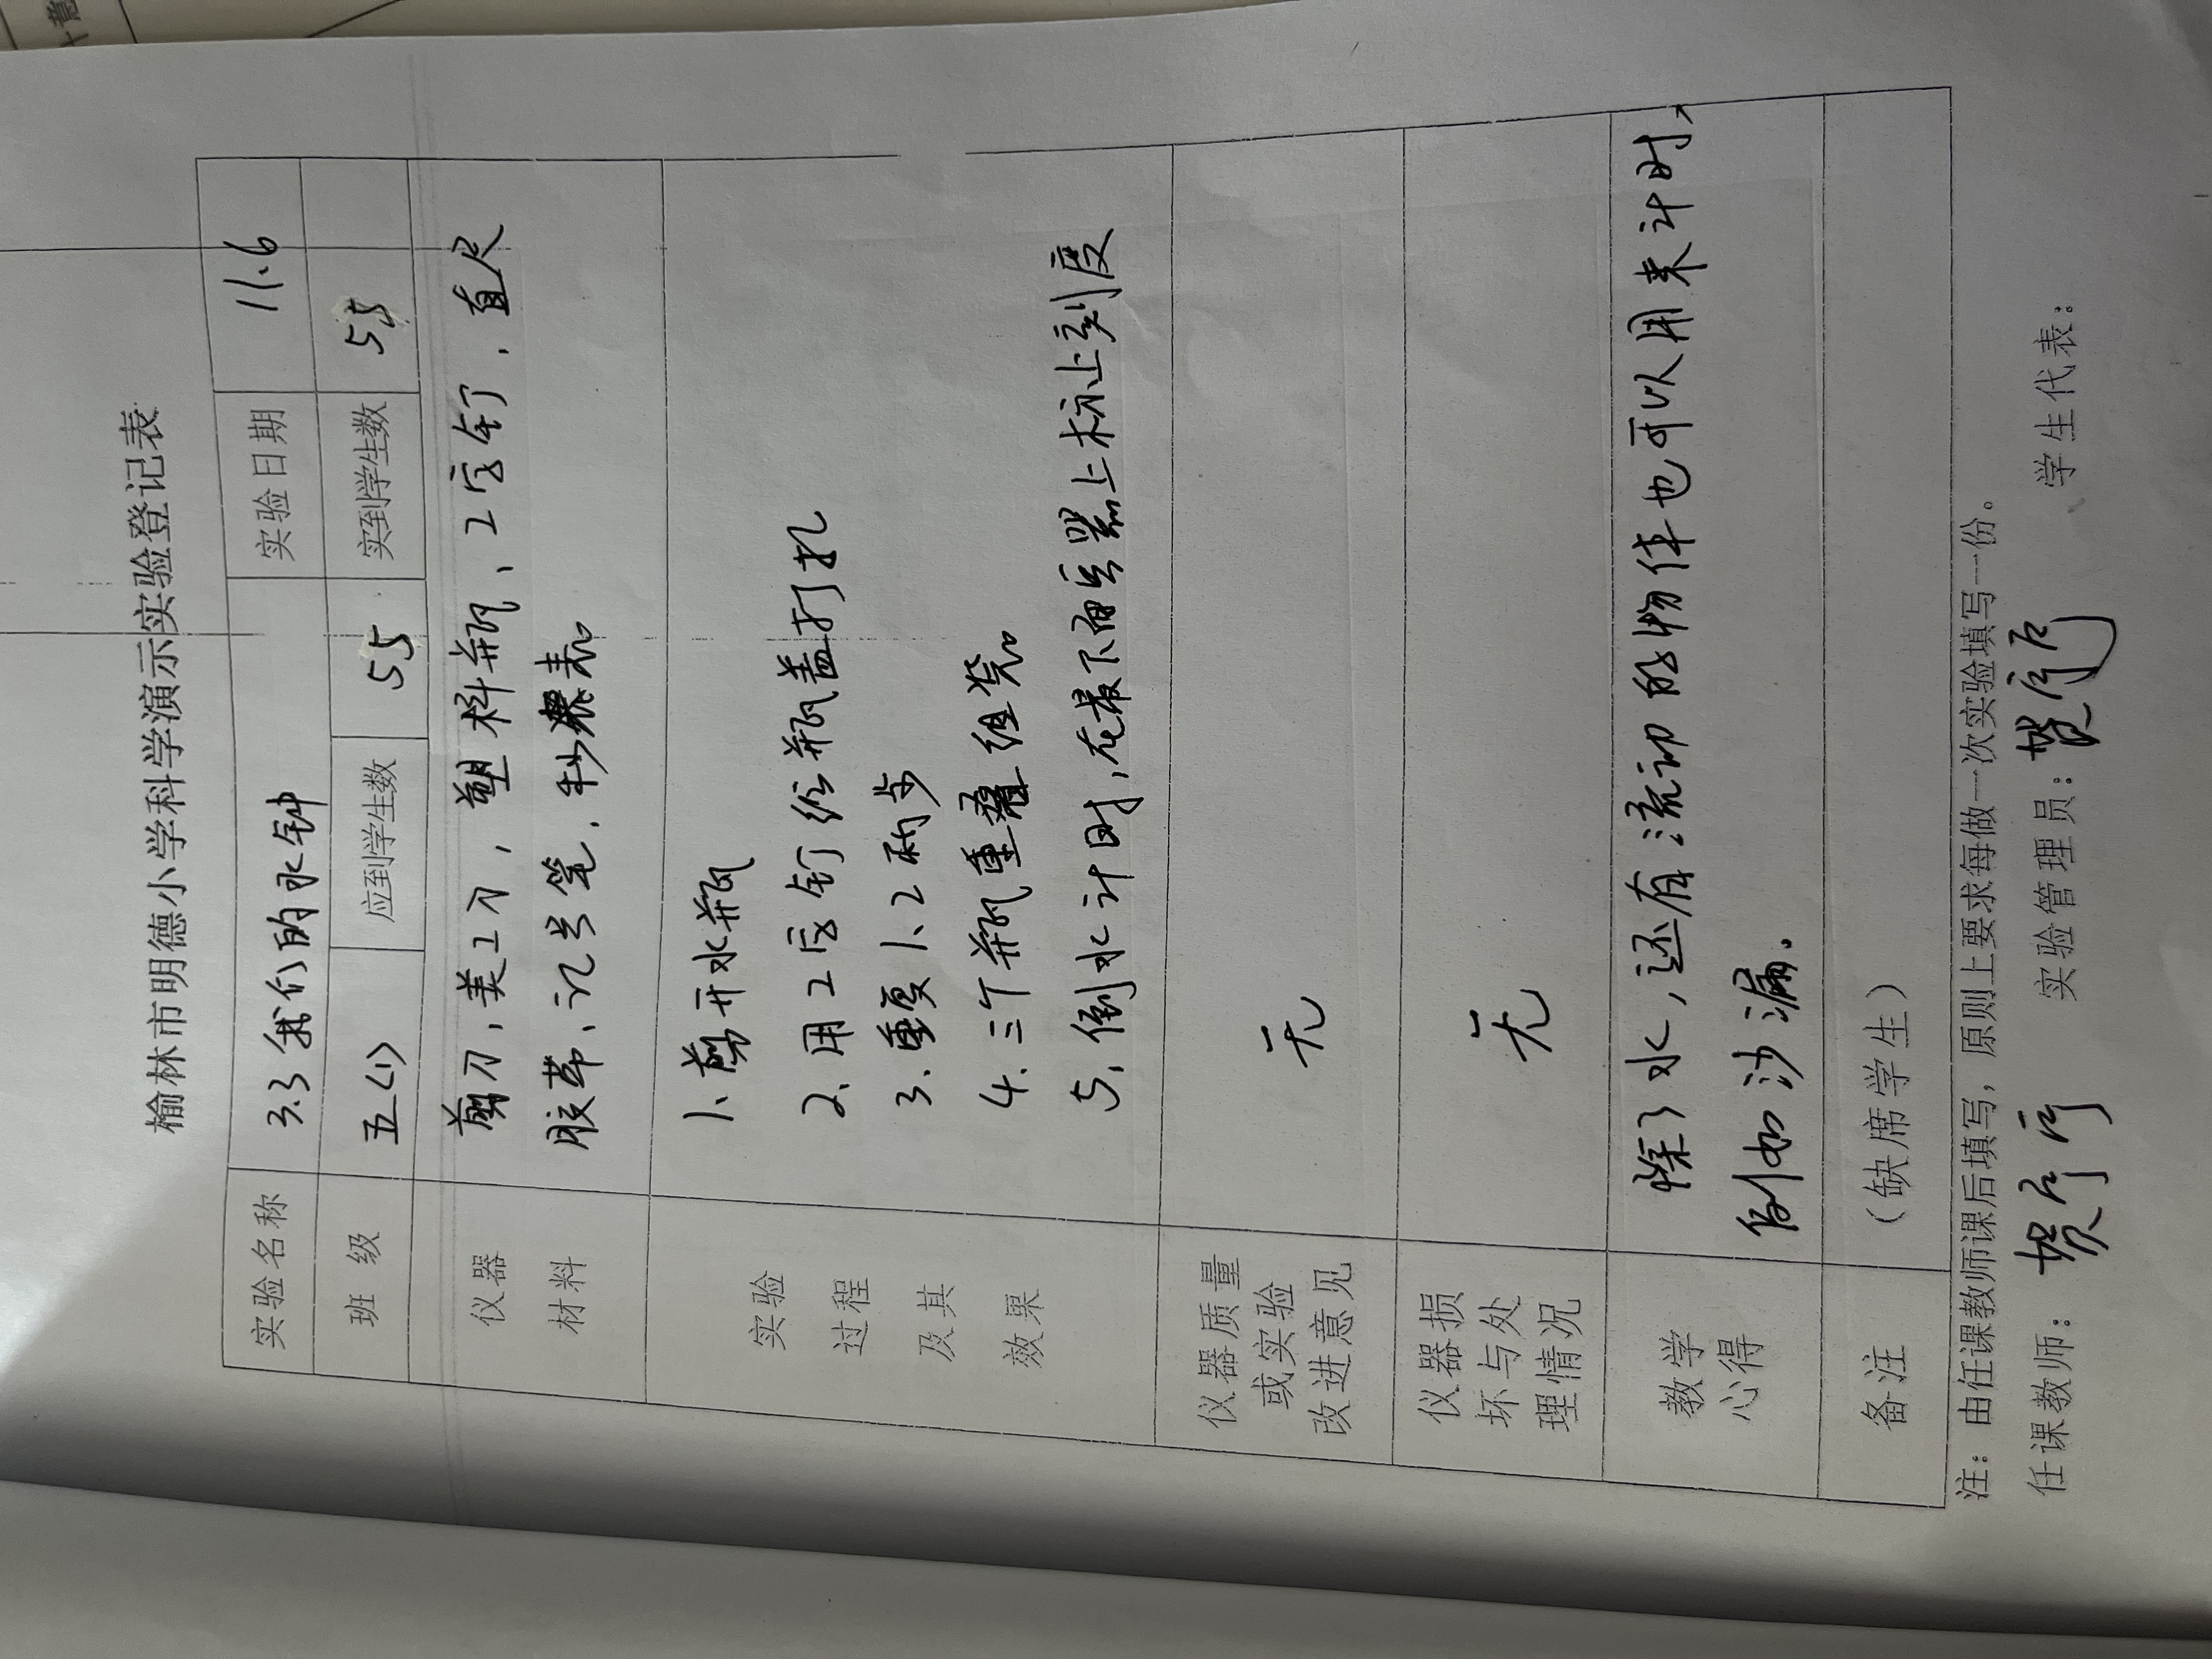 榆林市明德小学科学演示实验登记表
实验名称 3.3我们的水钟 实验日期 11.6
班 级 五(1) 应到学生数 55 实到学生数 55
仪器
材料
剪刀，美工刀，塑料瓶、工字钉、直尺
胶带、记号笔、秒表
实验
过程
及其
效果
1、剪开水瓶
2、用工字钉给瓶盖打孔
3.重复1、2两步
4.三个瓶重叠组装
5，倒水计时，在最下面
上标上刻度
仪器质量
或实验
改进意见
无
仪器损
坏与处
理情况
无
教学
心得
除了水，还有流动的物体也可以用来计时，
例如沙漏。
备注 （缺席学生）
注：由任课教师课后填写，原则上要求每做一次实验填写一份。
任课教师： 实验管理员： 学生代表：